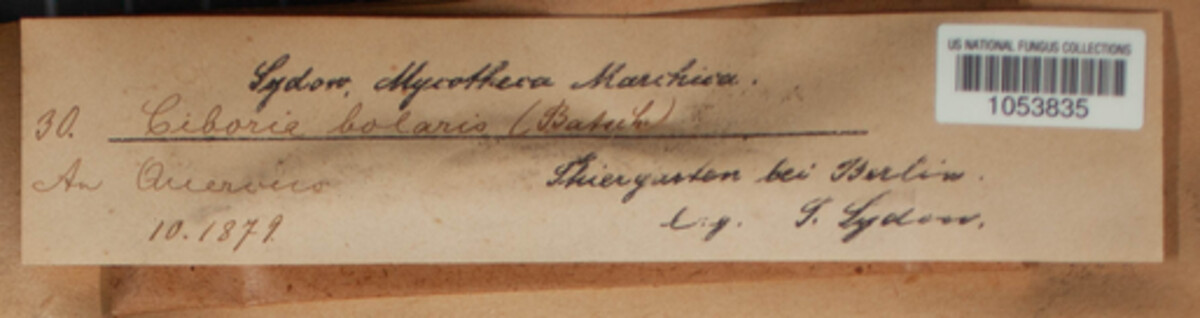 Sydow, Mycotheca Marchica.
US NATIONAL FUNGUS COLLECTIONS
1053835
30. Ciboria bolaris (Batsch)
An Quercus
Thiergarten bei Berlin.
10.1879.
leg. P. Sydow.